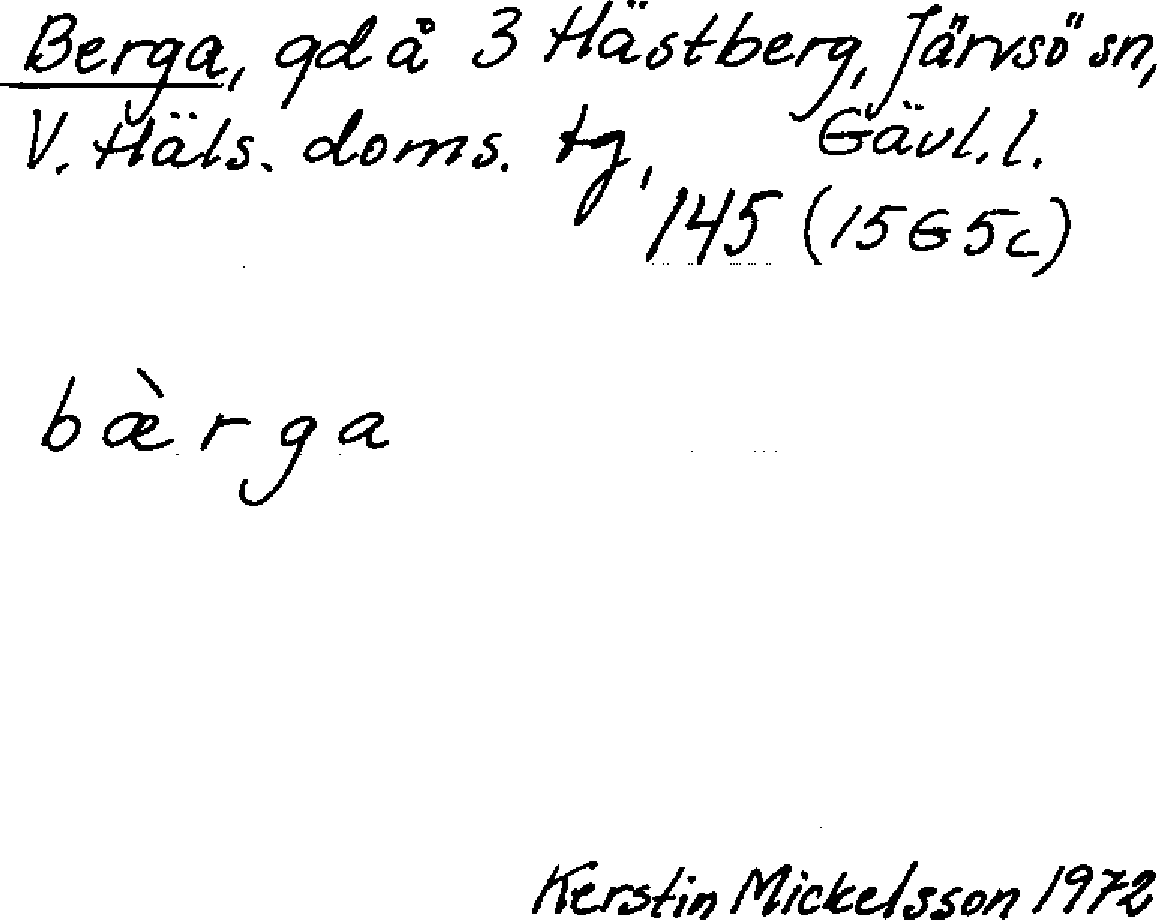 Berga, gd å 3 Hästberg, Järvsö sn,
V. Häls. doms. tg, Gävl. l.
145 (15G5c)
bæ̀rga
Kerstin Mickelsson 1972